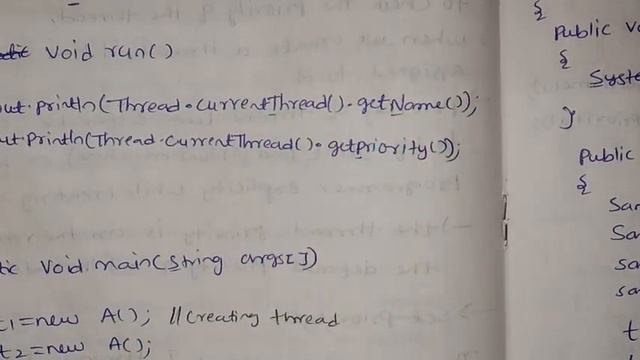 void run()
out.println(Thread.currentThread().getName());
ut.println(Thread.currentThread().getpriority());
tic void main(String args[])
t1=new A(); //Creating thread
t2=new A();
{
Public vo
{
Syste
}
Public
{
Sar
Sa
sa
sa
t